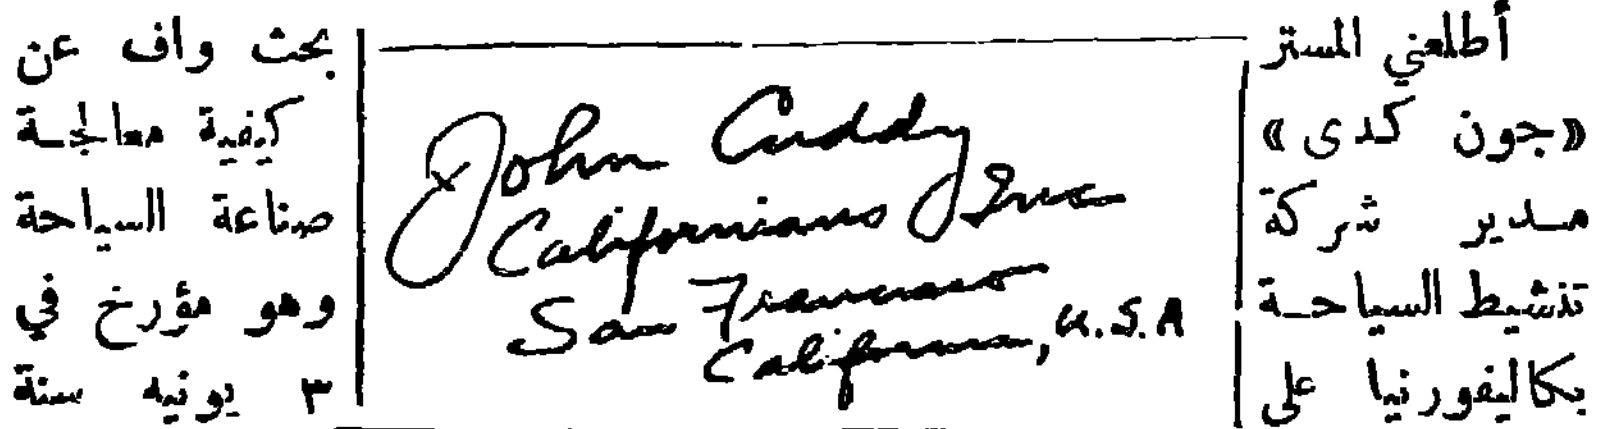 أطلعني المستر
«جون كدى»
مدير شركة
تنشيط السياحة
بكاليفورنيا على
John Cuddy
Californians Inc
San Francisco
California, U.S.A
بحث واف عن
كيفية معالجة
صناعة السياحة
وهو مؤرخ في
٣ يونيه سنة